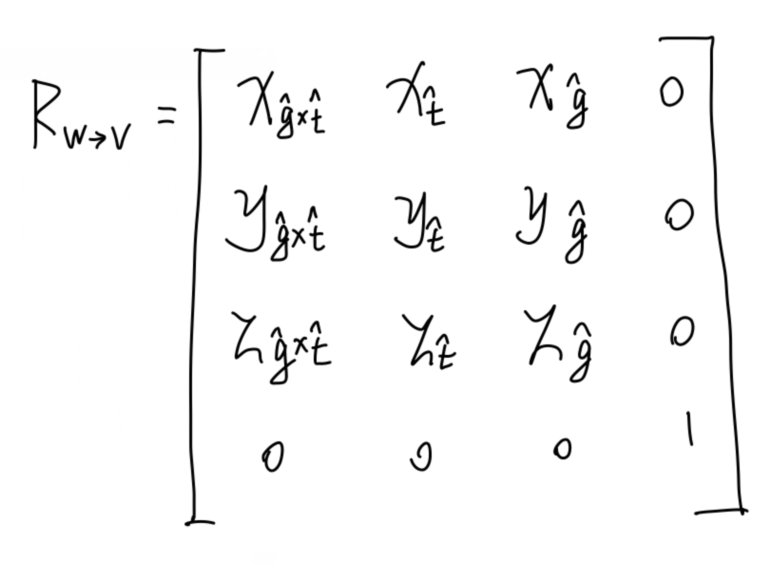 R_{W→V} = [ x_{ĝ×t̂} x_{t̂} x_{ĝ} 0
y_{ĝ×t̂} y_{t̂} y_{ĝ} 0
z_{ĝ×t̂} z_{t̂} z_{ĝ} 0
0 0 0 1 ]